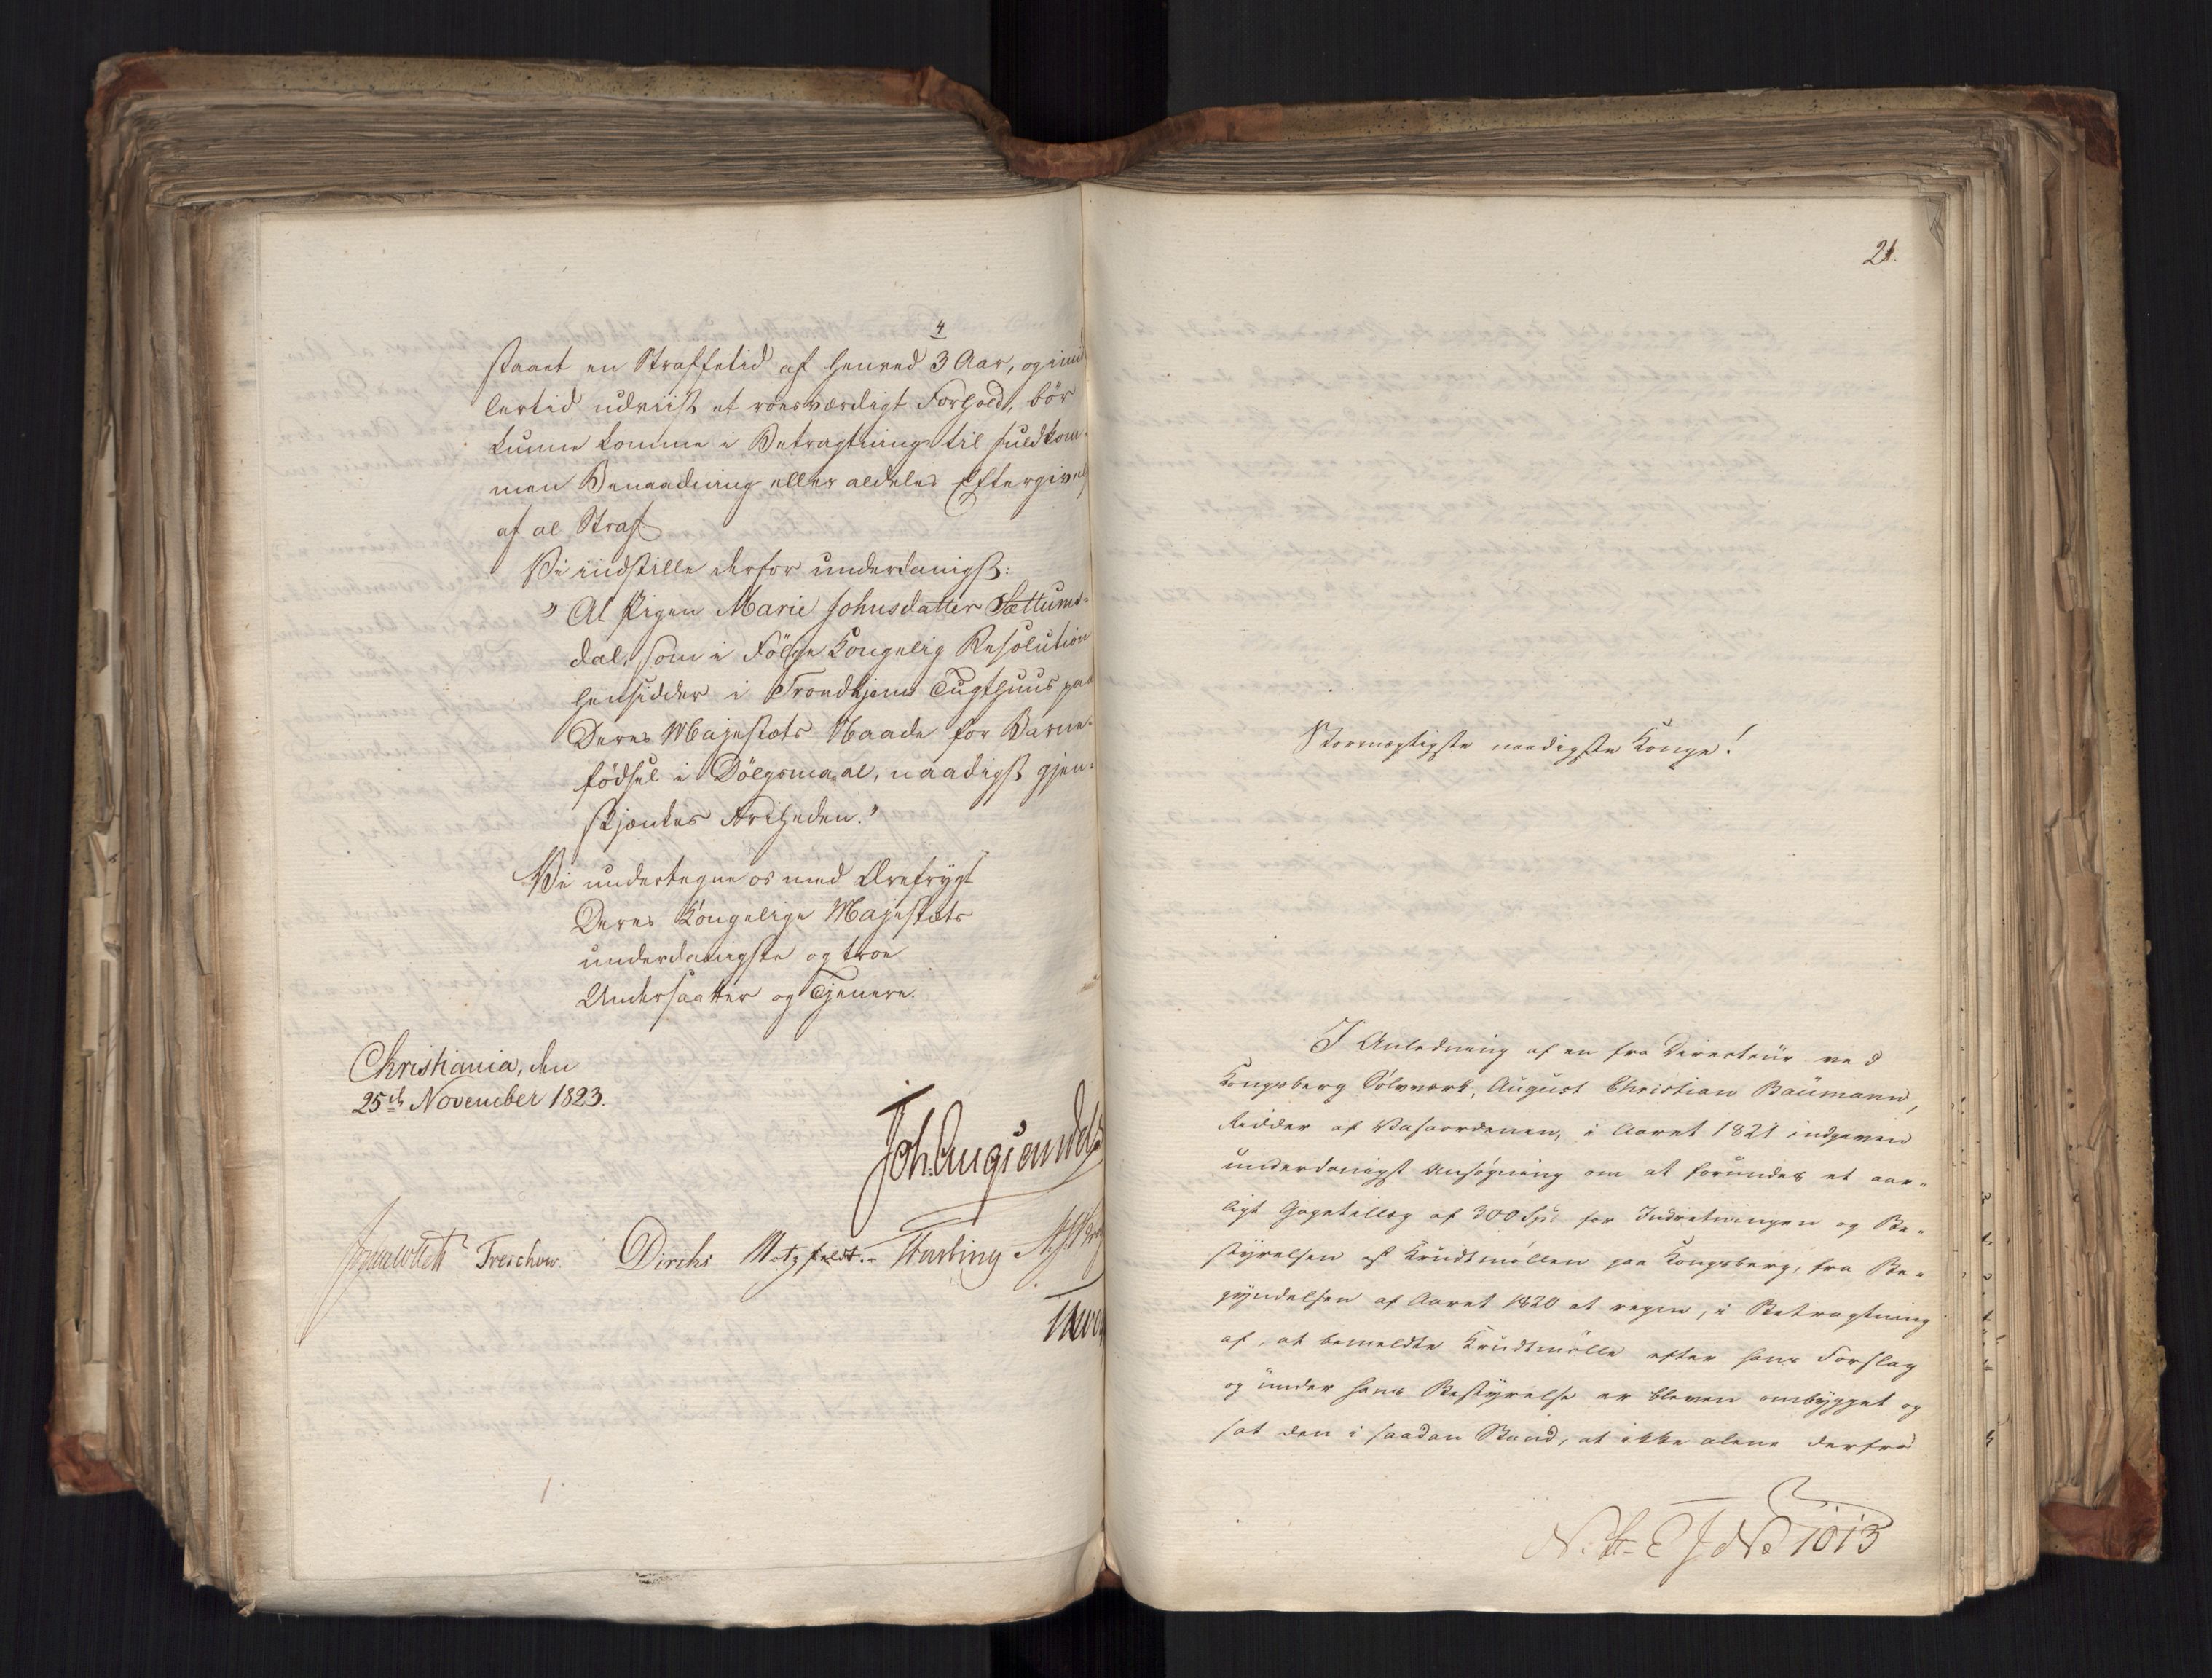 4
staaet en Straffetid af henved 3 Aar, og imid
lertid udviist et roesværdigt Forhold, bör
kunne komme i Betragtning til fuldkom-
men Benaadning eller aldeles Eftergivel
af al Straf.
Vi indstille derfor underdanigst:
"At Pigen Marie Johnsdatter Sættums-
dal, som i Fölge Kongelig Resolution
hensidder i Trondhjems Tugthuus paa
Deres Majestæts Naade for Barne-
födsel i Dölgsmaal, naadigst gjen-
skjænkes Friheden."
Vi undertegne os med Ærefrygt
Deres Kongelige Majestæts
underdanigste og troe
Undersaatter og Tjenere.
Christiania, den
25de November 1823.
Joh. Aug: Sandels
Jonas Collett Treschow. Diriks Motzfeldt. Fasting
21.
Stormægtigste naadigste Konge!
I Anledning af en fra Directeur ved
Kongsberg Sölvværk, August Christian Baumann,
Ridder af Vasaordenen, i Aaret 1821 indgiven
underdanigst Ansögning om at forundes et aar-
ligt Gagetillæg af 300 Spd. for Indretningen og Be-
styrelsen af Krudtmöllen paa Kongsberg, fra Be-
gyndelsen af Aaret 1820 at regne, i Betragtning
af, at bemeldte Krudtmölle efter hans Forslag
og under hans Bestyrelse er bleven ombygget og
sat den i saadan Stand, at ikke alene derfra
No 1013